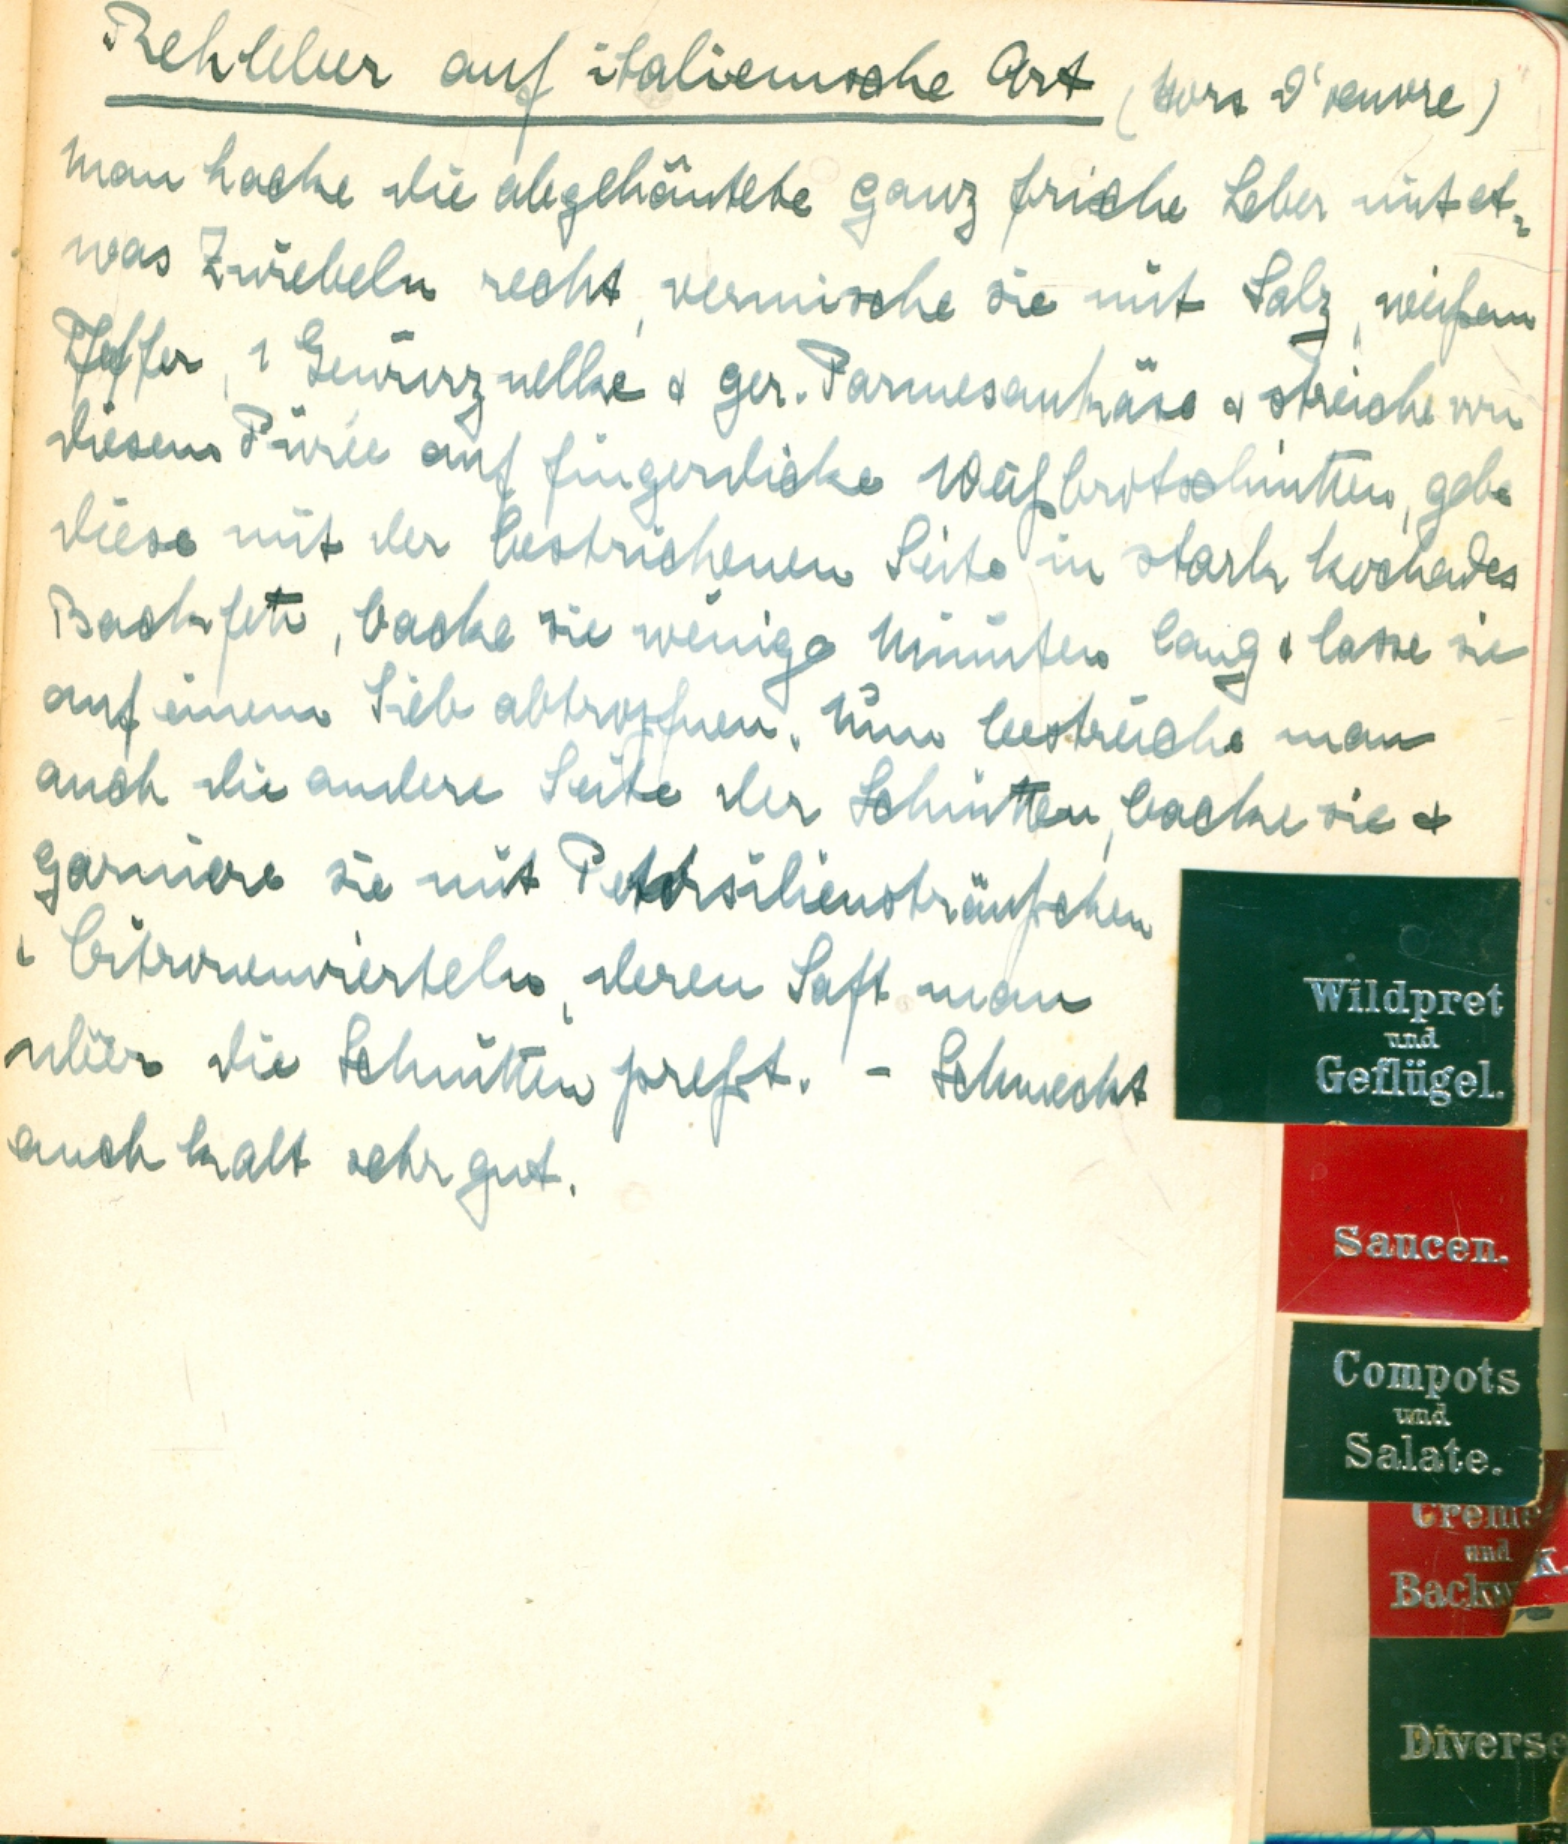 Rehleber auf italienische Art (Hors d'oeuvre)
Man hacke die abgehäutete ganz frische Leber mit et-
was Zwiebeln recht, vermische sie mit Salz, weißem
Pfeffer, 1 Gewürznelke & ger. Parmesankäse & streiche von
diesem Püree auf fingerdicke Weißbrotschnitten, gebe
diese mit der bestrichenen Seite in stark kochendes
Backfett, backe sie wenige Minuten lang & lasse sie
auf einem Sieb abtropfen. Nun bestreiche man
auch die andere Seite der Schnitten, backe sie &
garniere sie mit Petersiliensträußchen
& Citronenvierteln, deren Saft man
über die Schnitten preßt. - Schmeckt
auch kalt sehr gut.
Wildpret
und
Geflügel.
Saucen.
Compots
und
Salate.
und
K.